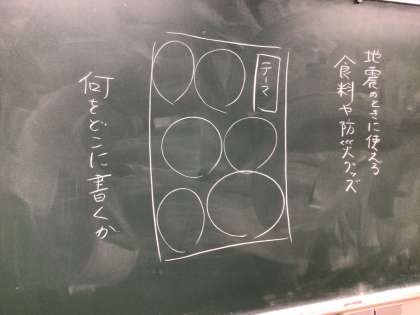 地震のときに使える
食料や防災グッズ
テーマ
何をどこに書くか